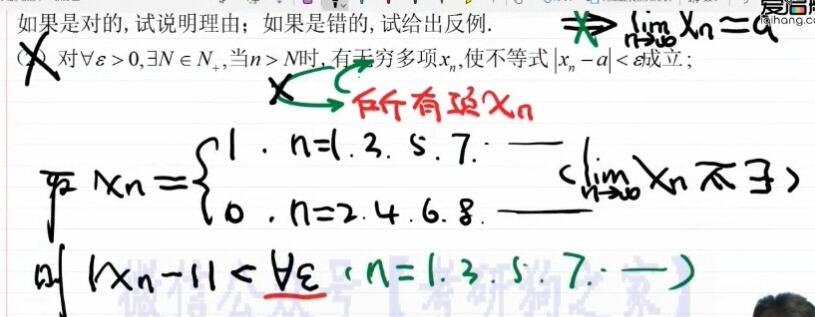 如果是对的,试说明理由；如果是错的,试给出反例.
⇏ lim n→∞ Xn = a
(2) 对∀ε > 0,∃N ∈ N₊,当n > N时,有无穷多项xₙ,使不等式|xₙ − a| < ε成立；
× 所有项Xn
取 Xn = { 1 . n=1.3.5.7. —
0 . n=2.4.6.8. —
( lim n→∞ Xn 不∃ )
则 |Xn−1| < ∀ε ( n=1.3.5.7. — )
微信公众号【考研狗之家】